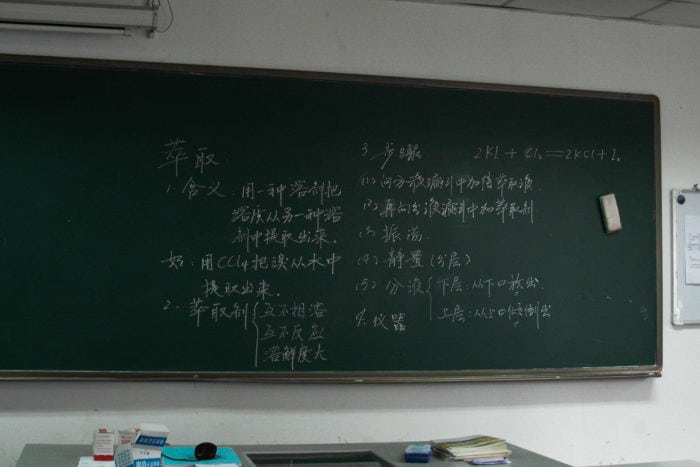 萃取.
1.含义:用一种溶剂把
溶质从另一种溶
剂中提取出来.
如:用CCl4把溴从水中
提取出来.
2.萃取剂{互不相溶
互不反应
溶解度大
3.步骤 2KI+Cl2=2KCl+I2
(1)向分液漏斗中加待萃取液.
(2)再向分液漏斗中加萃取剂
(3)振荡
(4)静置(分层)
(5)分液{下层:从下口放出.
上层:从上口倾倒出
4.仪器